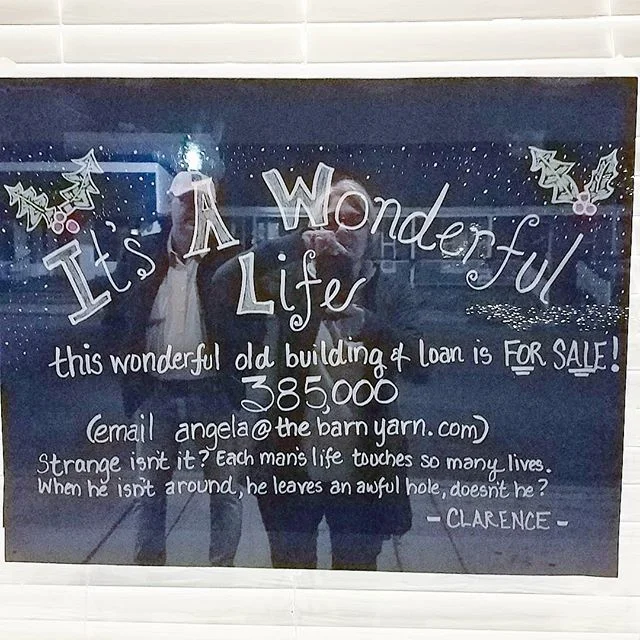 It's A Wonderful
Life
this wonderful old building & loan is FOR SALE!
385,000
(email angela@the barn yarn.com)
Strange isn't it? Each man's life touches so many lives.
When he isn't around, he leaves an awful hole, doesnt he?
- CLARENCE -